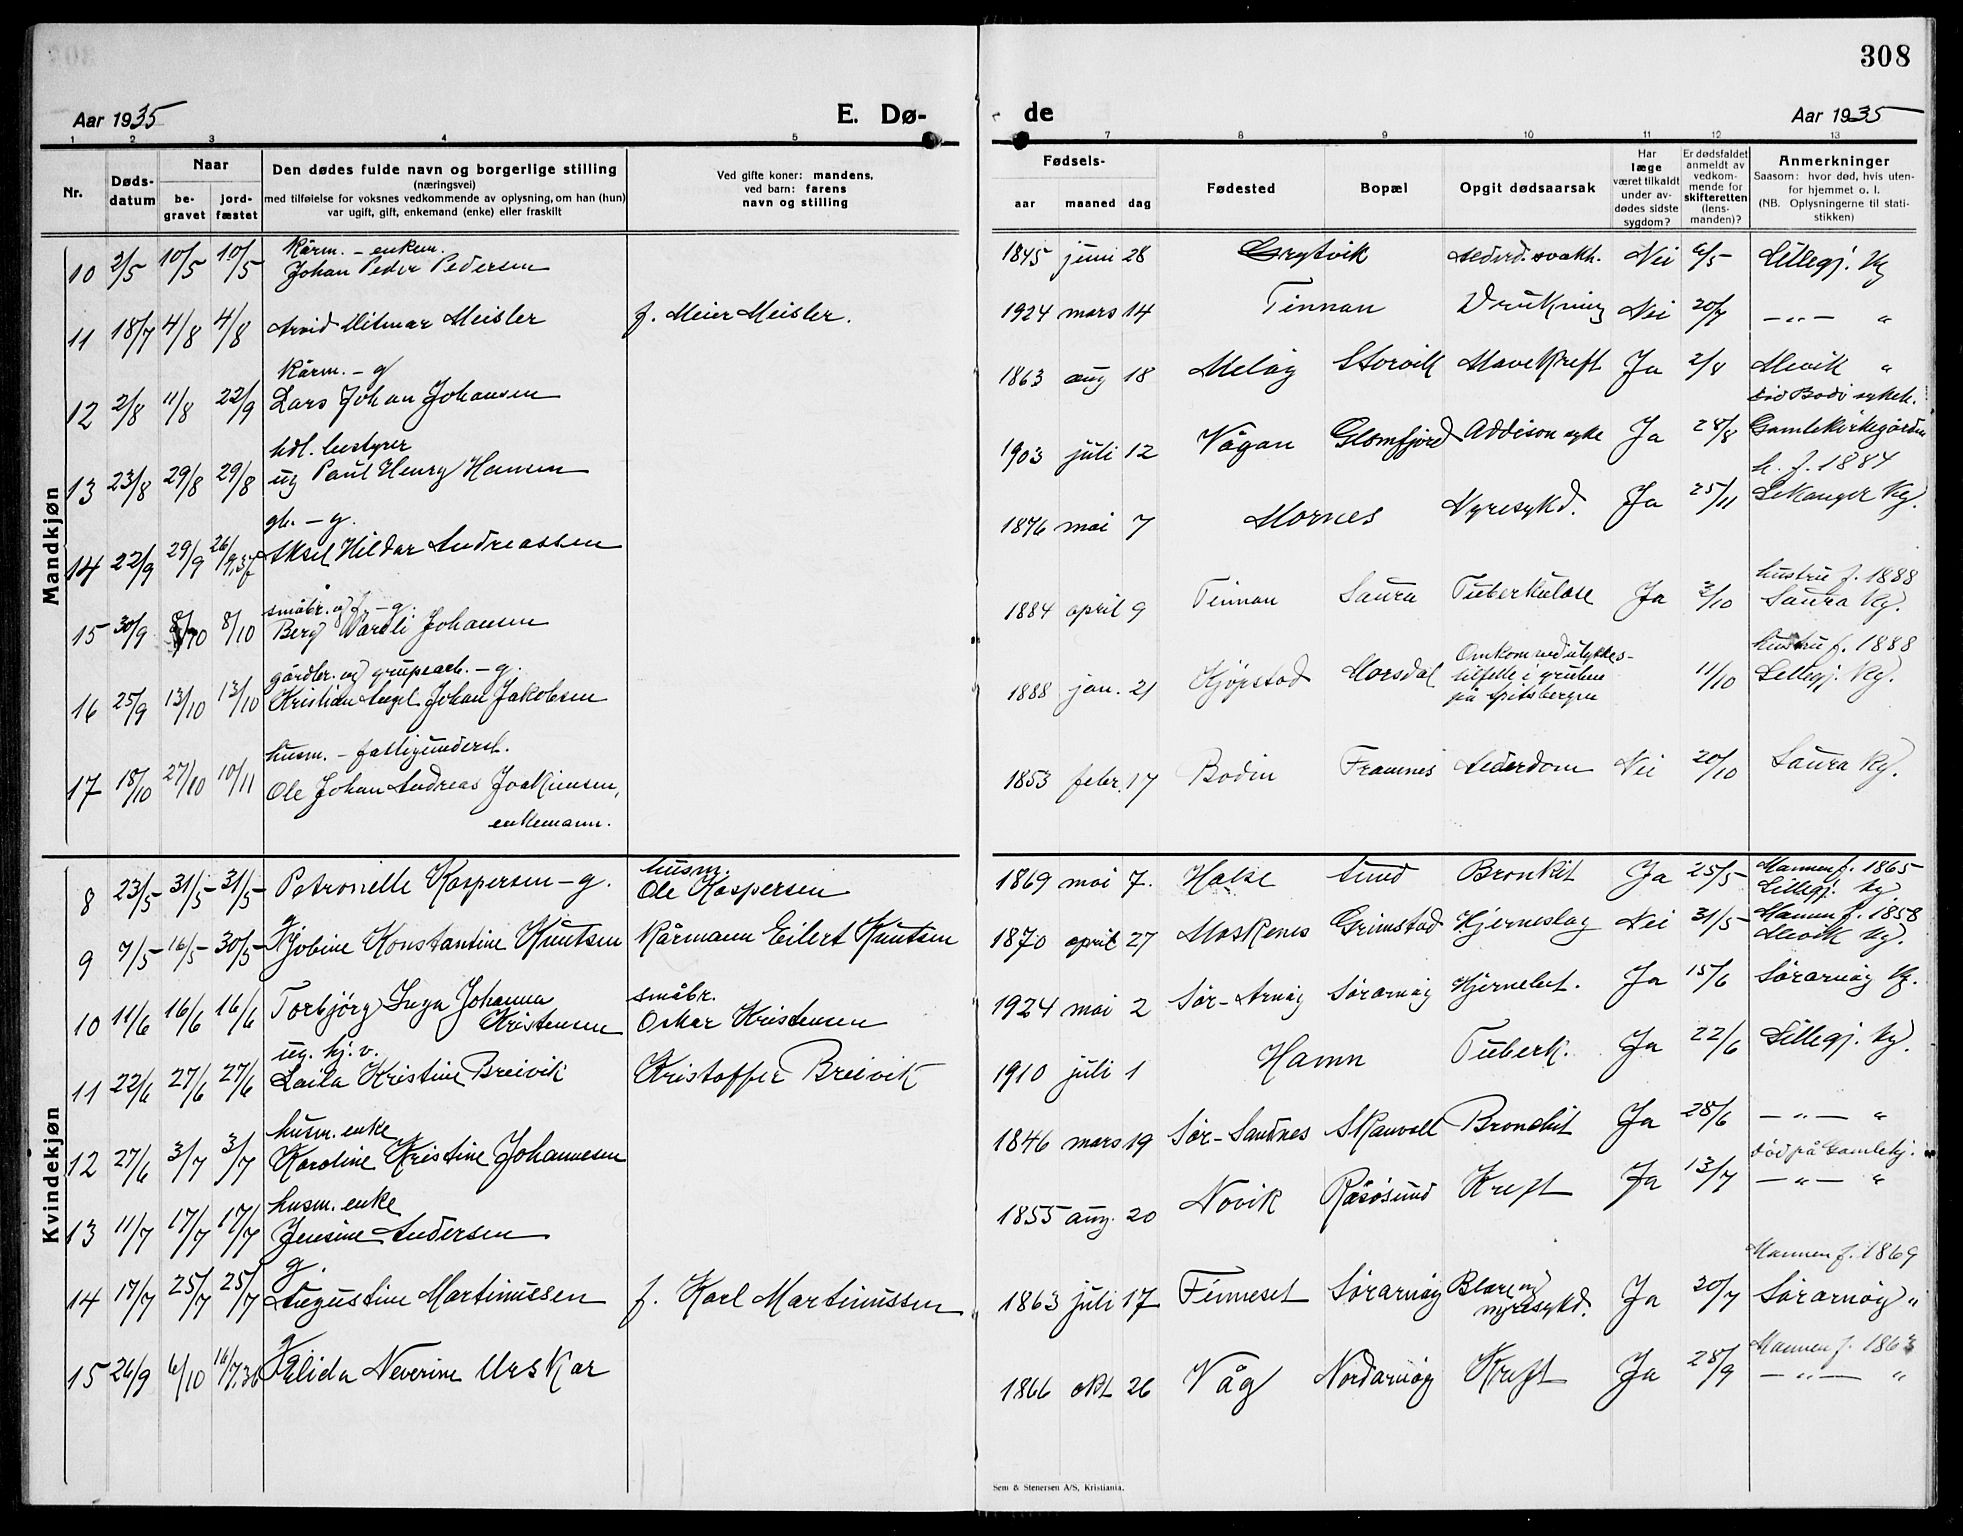 308
Aar 1935
E. Dø-
de
Aar 1935
1 2 3 4 5 7 8 9 10 11 12 13
Nr.
Døds-
datum
Naar
be-
gravet
jord-
fæstet
Den dødes fulde navn og borgerlige stilling
(næringsvei)
med tilføielse for voksnes vedkommende av oplysning, om han (hun)
var ugift, gift, enkemand (enke) eller fraskilt
Ved gifte koner: mandens,
ved barn: farens
navn og stilling
Fødsels-
aar maaned dag
Fødested
Bopæl
Opgit dødsaarsak
Har
læge
været tilkaldt
under av-
dødes sidste
sygdom?
Er dødsfaldet
anmeldt av
vedkom-
mende for
skifteretten
(lens-
manden)?
Anmerkninger
Saasom: hvor død, hvis uten-
for hjemmet o. l.
(NB. Oplysningerne til stati-
stikken)
Mandkjøn
Kårm. - enkem.
10 2/5 10/5 10/5 Johan Peder Pedersen 1845 juni 28 Grytvik alderd. svakh. Nei 6/5 Lillegj. Kg
11 18/7 4/8 4/8 Arvid Hilmar Meisler f. Meier Meisler. 1924 mars 14 Finnan Drukning Nei 20/7 -"- "
Kårm. - g
12 2/8 11/8 22/9 Lars Johan Johansen 1863 aug 18 Meløy Storvik Mavekreft Ja 2/8 Mevik "
død Bodø sykeh.
hdl. bestyrer
13 23/8 29/8 29/8 ug Paul Henry Hansen 1903 juli 12 Vågan Glomfjord Addison syke Ja 28/8 Gamlekirkegården
h. f. 1884
gb. - g.
14 22/9 29/9 26/9.37 Aksel Hildar Andreassen 1876 mai 7 Mornes Nyresykd. Ja 25/11 Lekanger Kg.
hustru f. 1888
småbr. og f - g.
15 30/9 8/10 8/10 Berg Wardli Johansen 1884 april 9 Finnan Saura Tuberkulose Ja 2/10 Saura Kg.
hustru f. 1888
gårdbr. og grubearb. - g.
16 25/9 13/10 13/10 Kristian Angel Johan Jakobsen 1888 jan. 21 Kjøpstad Morsdal Omkom ved ulykkes-
tilfelle i gruben
på Spitsbergen
11/10 Lillegj. Kg.
husm. - fattigunderst.
17 18/10 27/10 10/11 Ole Johan Andreas Joakimsen,
enkemann.
1853 febr. 17 Bodin Framnes Alderdom Nei 20/10 Saura Kg.
Kvindekjøn
8 23/5 31/5 31/5 Petronelle Kaspersen - g. husm.
Ole Kaspersen 1869 mai 7. Halse Sund Bronkit Ja 25/5 Mannen f. 1865
Lillegj. Kg
9 7/5 16/5 30/5 g Jobine Konstantine Knutsen Kårmann Eilert Knutsen 1870 april 27 Moskenes Grimstad Hjerneslag Nei 31/5 Mannen f. 1858
Mevik Kg.
10 11/6 16/6 16/6 Torbjörg Inga Johanna
Kristensen
småbr.
Oskar Kristensen 1924 mai 2 Sør-Arnøy Sørarnøy Hjernebet. Ja 15/6 Sørarnøy Kg.
ug. hj. v.
11 22/6 27/6 27/6 Laila Kristine Breivik Kristoffer Breivik 1910 juli 1 Hamn Tuberk. Ja 22/6 Lillegj. Kg.
husm. enke
12 27/6 3/7 3/7 Karoline Kristine Johannesen 1846 mars 19 Sør-Sandnes Skauvoll Bronchit Ja 28/6 -"- "
død på Gamlehj.
husm. enke
13 11/7 17/7 17/7 Jensine Andersen 1855 aug. 20 Novik Råsøsund Kreft Ja 13/7 -"- "
Mannen f. 1869
g.
14 17/7 25/7 25/7 Augustine Martinussen f. Karl Martinussen 1863 juli 17 Finneset Sørarnøy Blære og
nyresykd. Ja 20/7 Sørarnøy "
Mannen f. 1863
g
15 26/9 6/10 16/7.36 Elida Neverine Urskar 1866 okt 26 Våg Nordarnøy Kreft Ja 28/9 -"- "
Sem & Stenersen A/S, Kristiania.